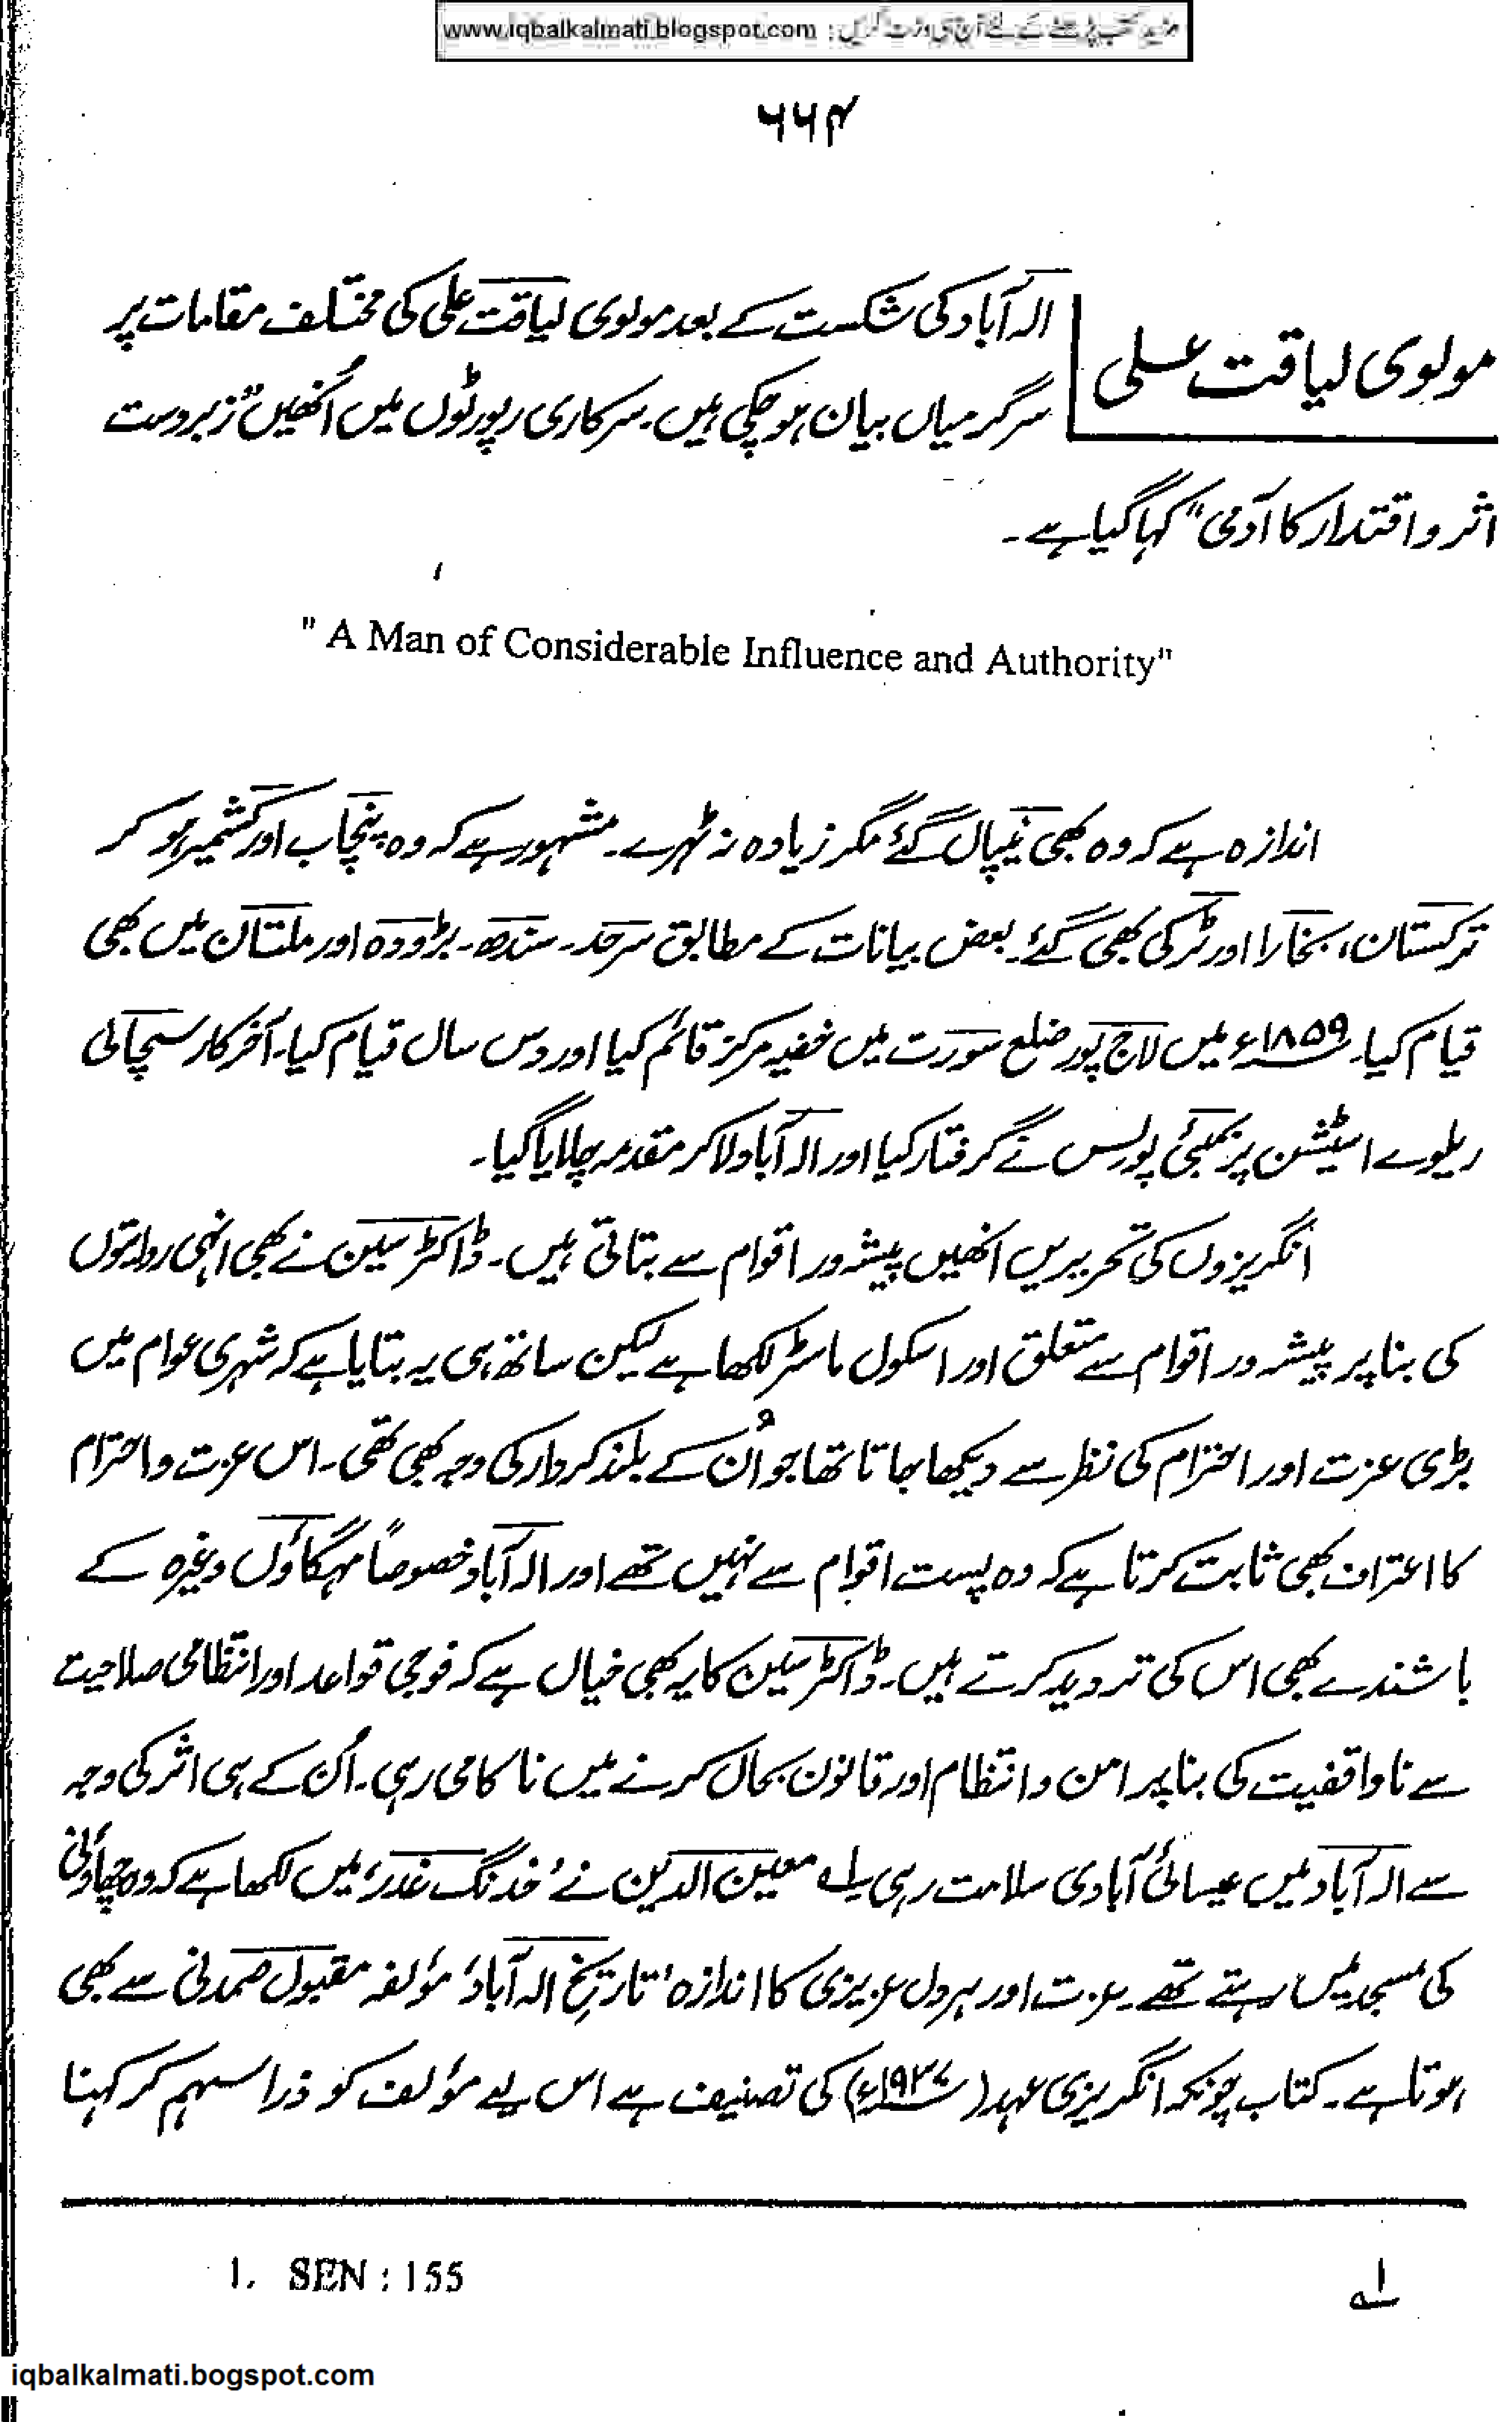 مزید کتب پڑھنے کے لئے آج ہی وزٹ کریں : www.iqbalkalmati.blogspot.com
۶۶۴
مولوی لیاقت علی
الہ آباد کی شکست کے بعد مولوی لیاقت علی کی مختلف مقامات پر
سرگرمیاں بیان ہو چکی ہیں۔ سرکاری رپورٹوں میں اُنھیں "زبردست
اثر و اقتدار کا آدمی" کہا گیا ہے۔
" A Man of Considerable Influence and Authority"
اندازہ ہے کہ وہ بھی نیپال گئے مگر زیادہ نہ ٹہرے۔ مشہور ہے کہ وہ پنجاب اور کشمیر ہو کر
ترکستان، بخارا اور ٹرکی بھی گئے۔ بعض بیانات کے مطابق سرحد۔ سندھ۔ بڑودہ اور ملتان میں بھی
قیام کیا۔ ۱۸۵۹ء میں لاج پور ضلع سورت میں خفیہ مرکز قائم کیا اور دس سال قیام کیا۔ آخر کار سچائی
ریلوے اسٹیشن پر بمبئی پولس نے گرفتار کیا اور الہ آباد لا کر مقدمہ چلایا گیا۔
انگریزوں کی تحریریں انھیں پیشہ ور اقوام سے بتاتی ہیں۔ ڈاکٹر سین نے بھی انہی روایتوں
کی بنا پر پیشہ ور اقوام سے متعلق اور اسکول ماسٹر لکھا ہے لیکن ساتھ ہی یہ بتایا ہے کہ شہری عوام میں
بڑی عزت اور احترام کی نظر سے دیکھا جاتا تھا جو اُن کے بلند کردار کی وجہ بھی تھی۔ اس عزت و احترام
کا اعتراف بھی ثابت کرتا ہے کہ وہ پست اقوام سے نہیں تھے اور الہ آباد خصوصاً مہگاؤں وغیرہ کے
باشندے بھی اس کی تردید کرتے ہیں۔ ڈاکٹر سین کا یہ بھی خیال ہے کہ فوجی قواعد اور انتظامی صلاحیت
سے ناواقفیت کی بنا پر امن و انتظام اور قانون بحال کرنے میں ناکامی رہی۔ اُن کے ہی اثر کی وجہ
سے الہ آباد میں عیسائی آبادی سلامت رہی۔ ۱ے معین الدین نے 'خدنگ غدر' میں لکھا ہے کہ وہ چھاؤنی
کی مسجد میں رہتے تھے۔ عزت اور ہر دل عزیزی کا اندازہ 'تاریخ الہ آباد' مؤلفہ مقبول صمدنی سے بھی
ہوتا ہے۔ کتاب چونکہ انگریزی عہد (۱۹۳۷ء) کی تصنیف ہے اس لیے مؤلف کو ذرا سہم کر کہنا
۱ے 1. SEN : 155
iqbalkalmati.bogspot.com